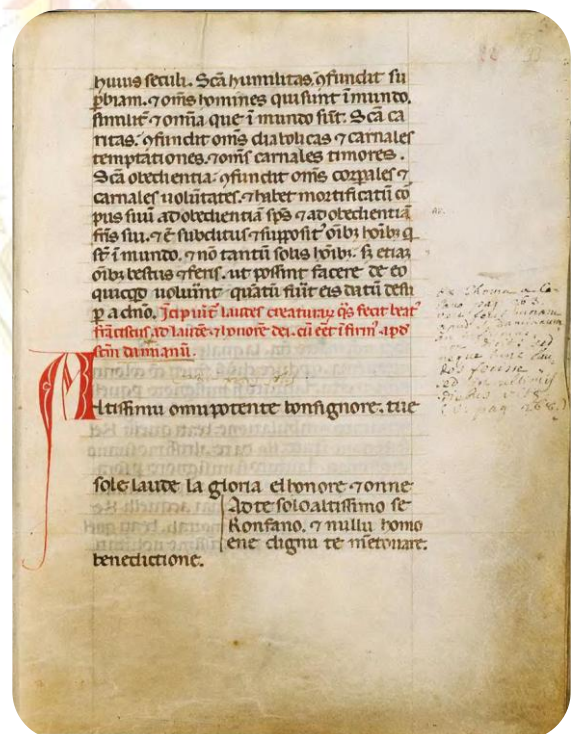 huius seculi. Scã humilitas ꝯfundit su
ꝑbiam. ⁊ oms homines qui sunt ĩ mundo.
similit̃ ⁊ omĩa que ĩ mundo sũt. Scã ca
ritas. ꝯfundit oms diabolicas ⁊ carnales
temptationes. ⁊ oms carnales timores.
Scã obedientia. ꝯfundit oms corpales ⁊
carnales volũtates. ⁊ habet mortificatũ cõ
pus suũ ad obedientiã sp̃s ⁊ ad obedientiã
fr̃is sui. ⁊ ẽ subditus ⁊ supposit᾽ oĩbꝫ hoĩbꝫ q
st̃ ĩ mundo. ⁊ nõ tantũ solis hoĩbꝫ. sꝫ etiaꝫ
oĩbꝫ bestiis ⁊ feris. ut possint facere de eo
quicqd voluĩnt quãtũ fũit eis datũ desu
ꝑ a dño. Jcipiũt laudes creaturaꝝ q̃s fecit beat᾽
frãciscus ad laudẽ ⁊ honorẽ dei. cũ eẽt ĩfirm᾽ apd
scm̃ damianũ.
Altissimu omnipotente bonsignore. tue
sole laude la gloria elhonore ⁊ onne
Ad te solo altissimo se
Konfano. ⁊ nullu homo
ene dignu te mẽtovare.
benedictione.